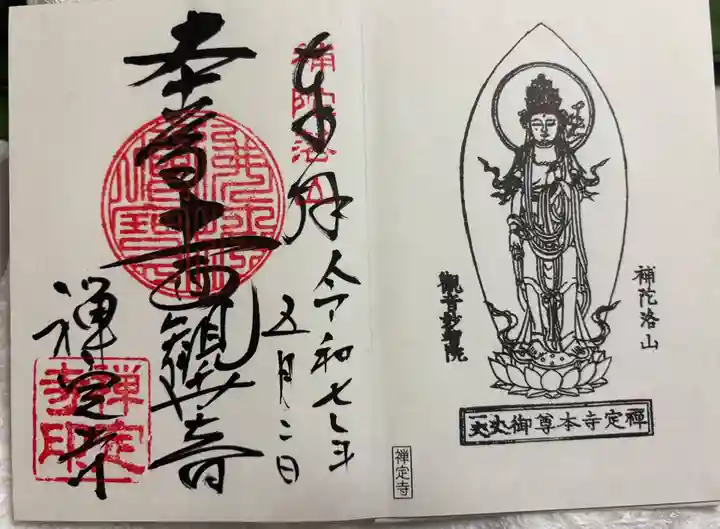 補陀洛山
奉拝
令和七年
五月二日
本尊十一面観世音
禅定寺
禅定寺印
補陀洛山
觀音妙智院
禪定寺本尊御
禅定寺